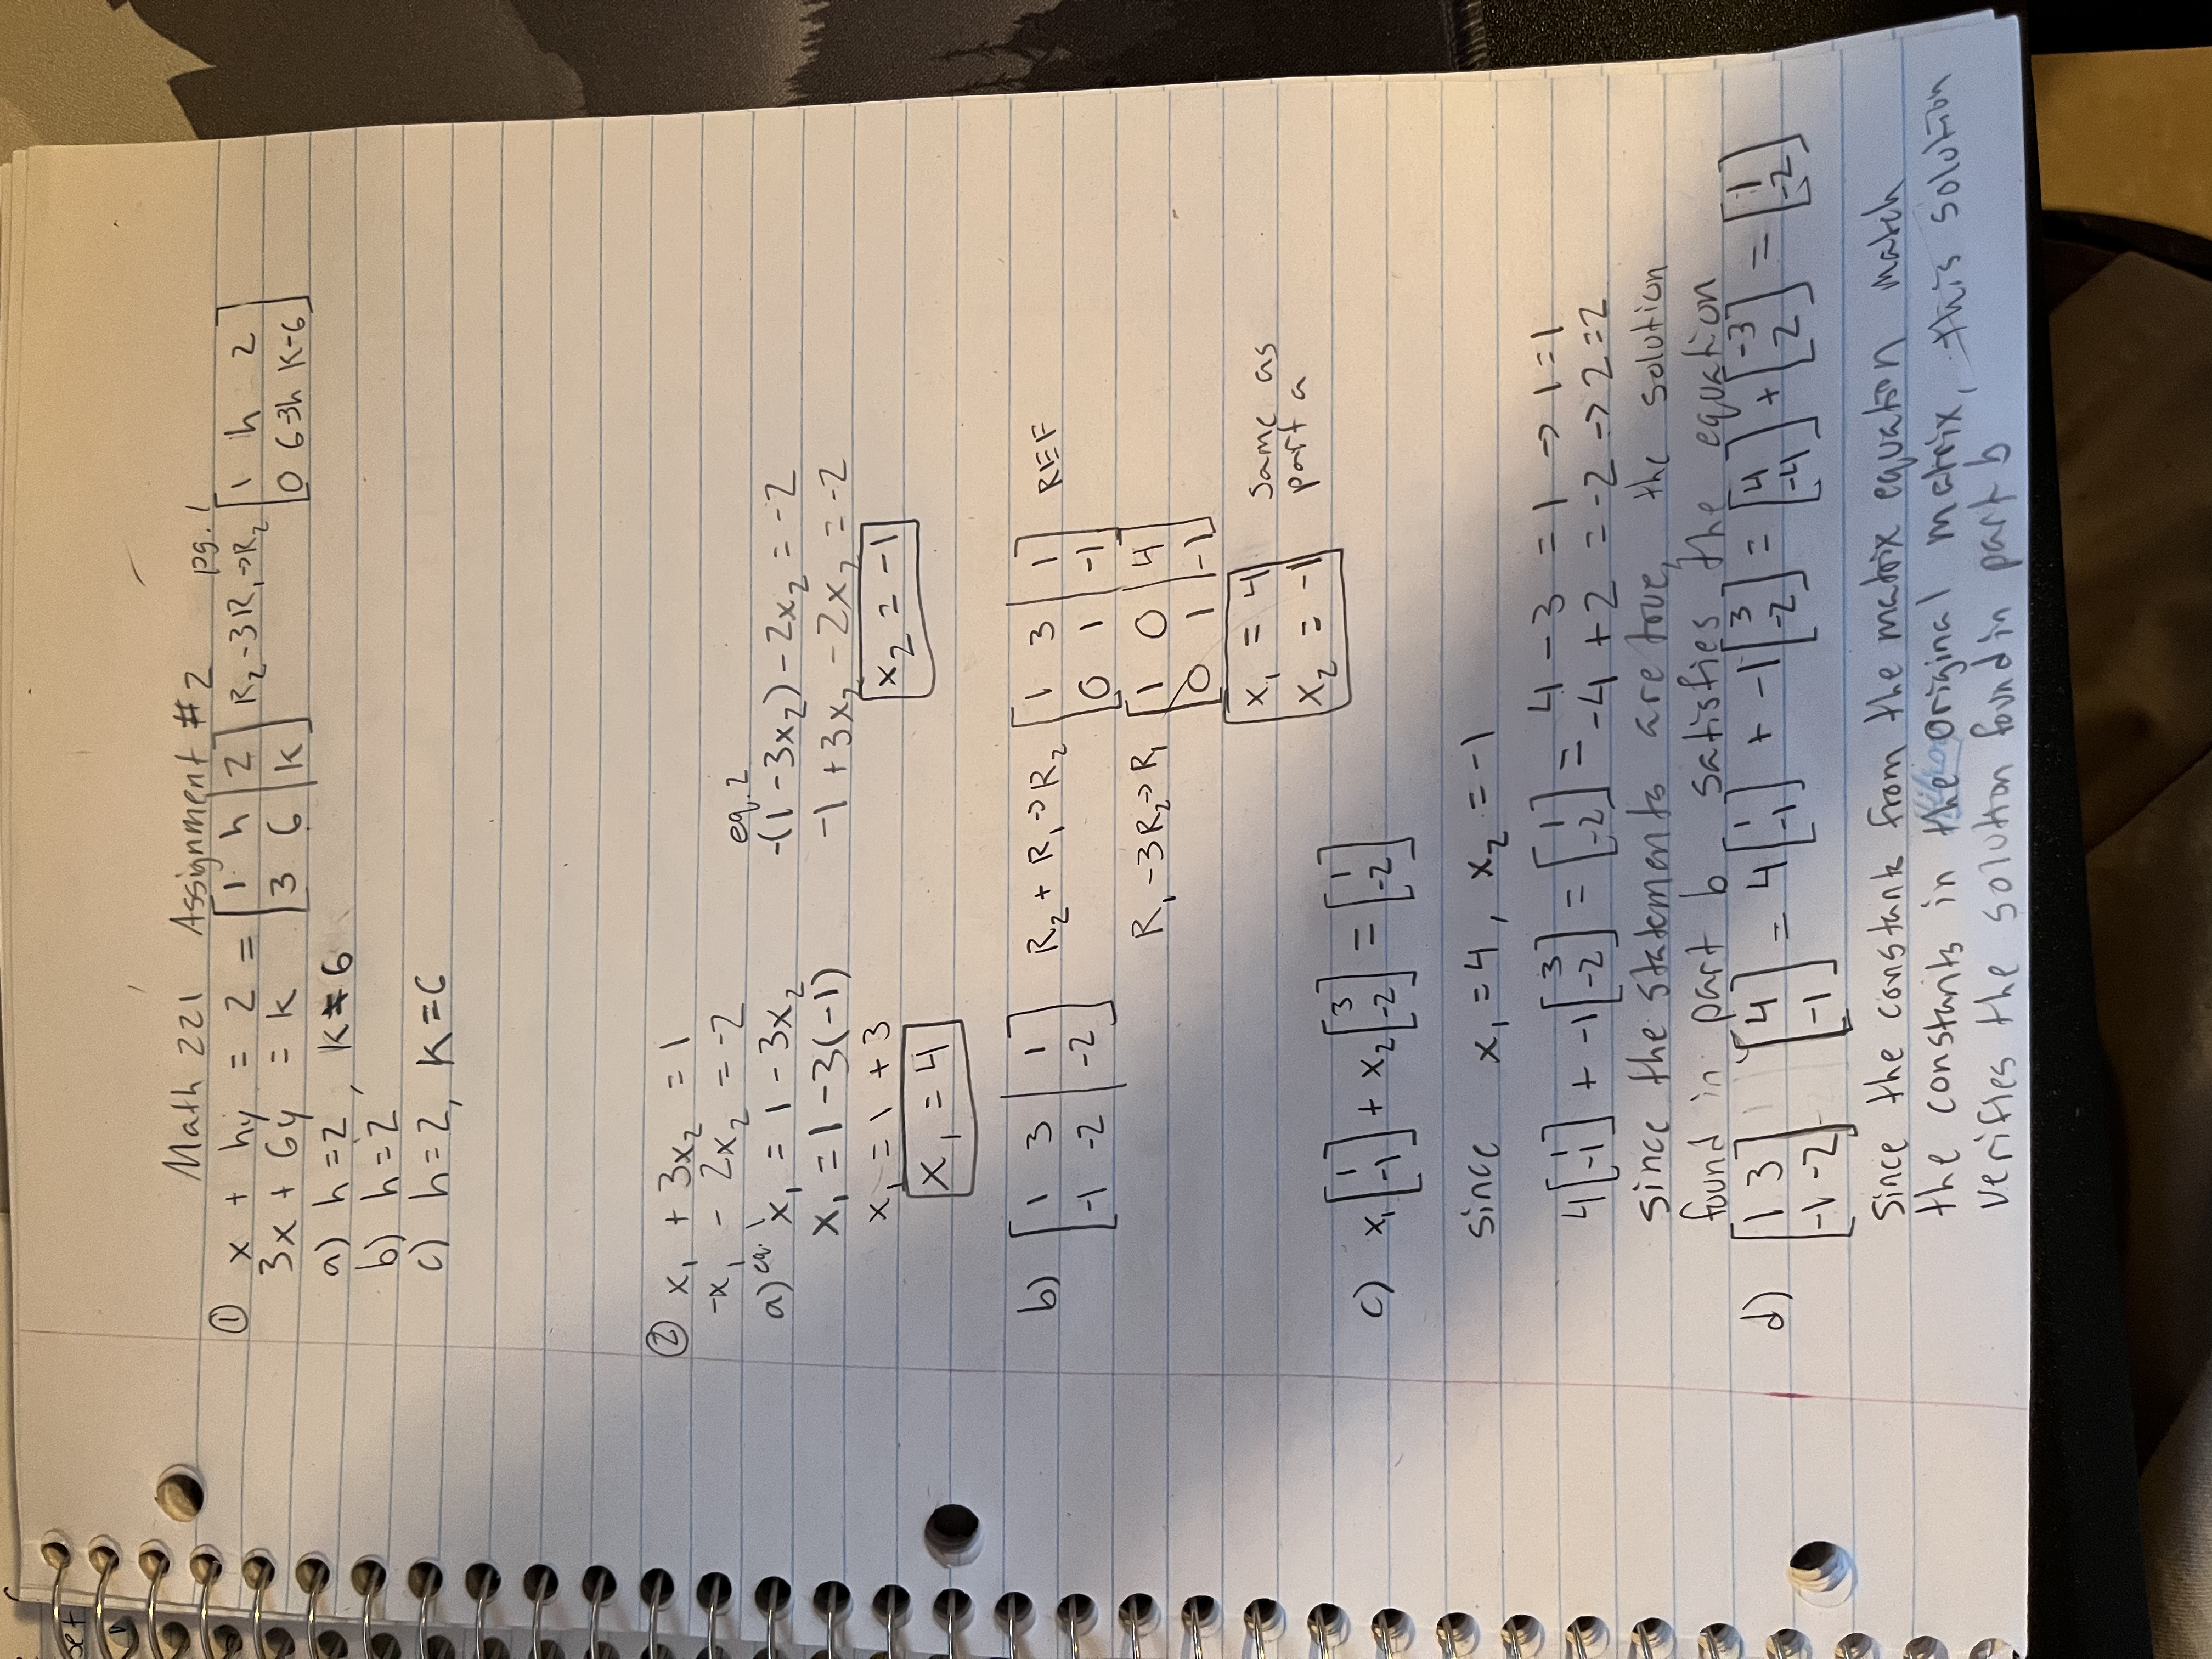 set
Math 221 Assignment #2 pg. 1
① x + hy = 2 = [1 h | 2] R₂-3R₁→R₂ [1 h 2]
3x + 6y = k [3 6 | k] [0 6-3h k-6]
a) h = 2, k ≠ 6
b) h = 2
c) h = 2, k = 6
② x₁ + 3x₂ = 1
-x₁ - 2x₂ = -2
eq. 2
a) eq. 1 x₁ = 1 - 3x₂ -(1 - 3x₂) - 2x₂ = -2
x₁ = 1 - 3(-1) -1 + 3x₂ - 2x₂ = -2
x₁ = 1 + 3 x₂ = -1
x₁ = 4
b) [1 3 | 1] R₂ + R₁→R₂ [1 3 | 1] REF
[-1 -2 | -2] [0 1 | -1]
R₁ - 3R₂→R₁ [1 0 | 4]
[0 1 | -1]
x₁ = 4 same as
x₂ = -1 part a
c) x₁[1 -1] + x₂[3 -2] = [1 -2]
since x₁ = 4, x₂ = -1
4[1 -1] + -1[3 -2] = [1 -2] = 4 - 3 = 1 → 1 = 1
-4 + 2 = -2 → 2 = 2
since the statements are true, the solution
found in part b satisfies the equation
d) [1 3 -1 -2] [4 -1] = 4[1 -1] + -1[3 -2] = [4 -4] + [-3 2] = [1 -2]
since the constants from the matrix equation match
the constants in the original matrix, this solution
verifies the solution found in part b
Hilroy